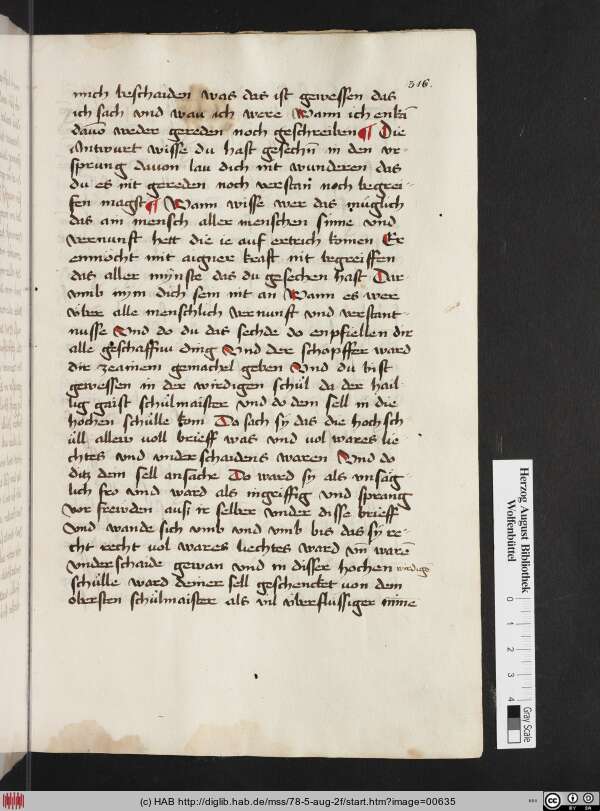 316.
mich beschaiden was das ist gewessen das
ich sach vnd wau ich were Wann ich enkā
dauō weder gereden noch geschreiben ¶ Die
Antwurt wisse du hast gesechn̄ in den vr-
sprung dauon lau dich nit wunderen das
du es nit gereden noch verstan̄ noch begrei-
fen magst ¶ Wann wisse wer das müglich
das ain mensch aller menschen sinne vnd
vernunft hett die ie auf ertrich komen Er
enmöcht mit aigner kraft nit begreiffen
das aller mynste das du gesechen hast Dar
vmb nym dich sein nit an Wann es wer
über alle menschlich vernunft vnd verstant-
nusse Vnd do du das sechde do enpfiellen dir
alle geschaffnu ding Vnd der schöpffer ward
dir zeainem gemachel geben Vnd du bist
gewessen in der wirdigen schül da der hail-
lig gaist schülmaister vnd do dem sell in die
hochen schülle kom Do sach sy das die hoch sch
üll aller voll brieff was vnd vol wares lie
chtes vnd vnderschaidens waren Vnd do
ditz dem sell ansache Do ward sy als vnsäg-
lich fro vnd ward als ingriffig vnd sprang
vor frewden ausi ir selber vnder disse brieff
Vnd wande sich vmb vnd vmb bis das sy re-
cht recht vol wares liechtes ward vn̄ warē
vnderschaide gewan vnd in disser hochen wirdige
schülle ward deiner sell geschencket von dem
obersten schülmaister als vil überflussiger minne
Herzog August Bibliothek
Wolfenbüttel
0 1 2 3 4
Gray Scale
(c) HAB http://diglib.hab.de/mss/78-5-aug-2f/start.htm?image=00635